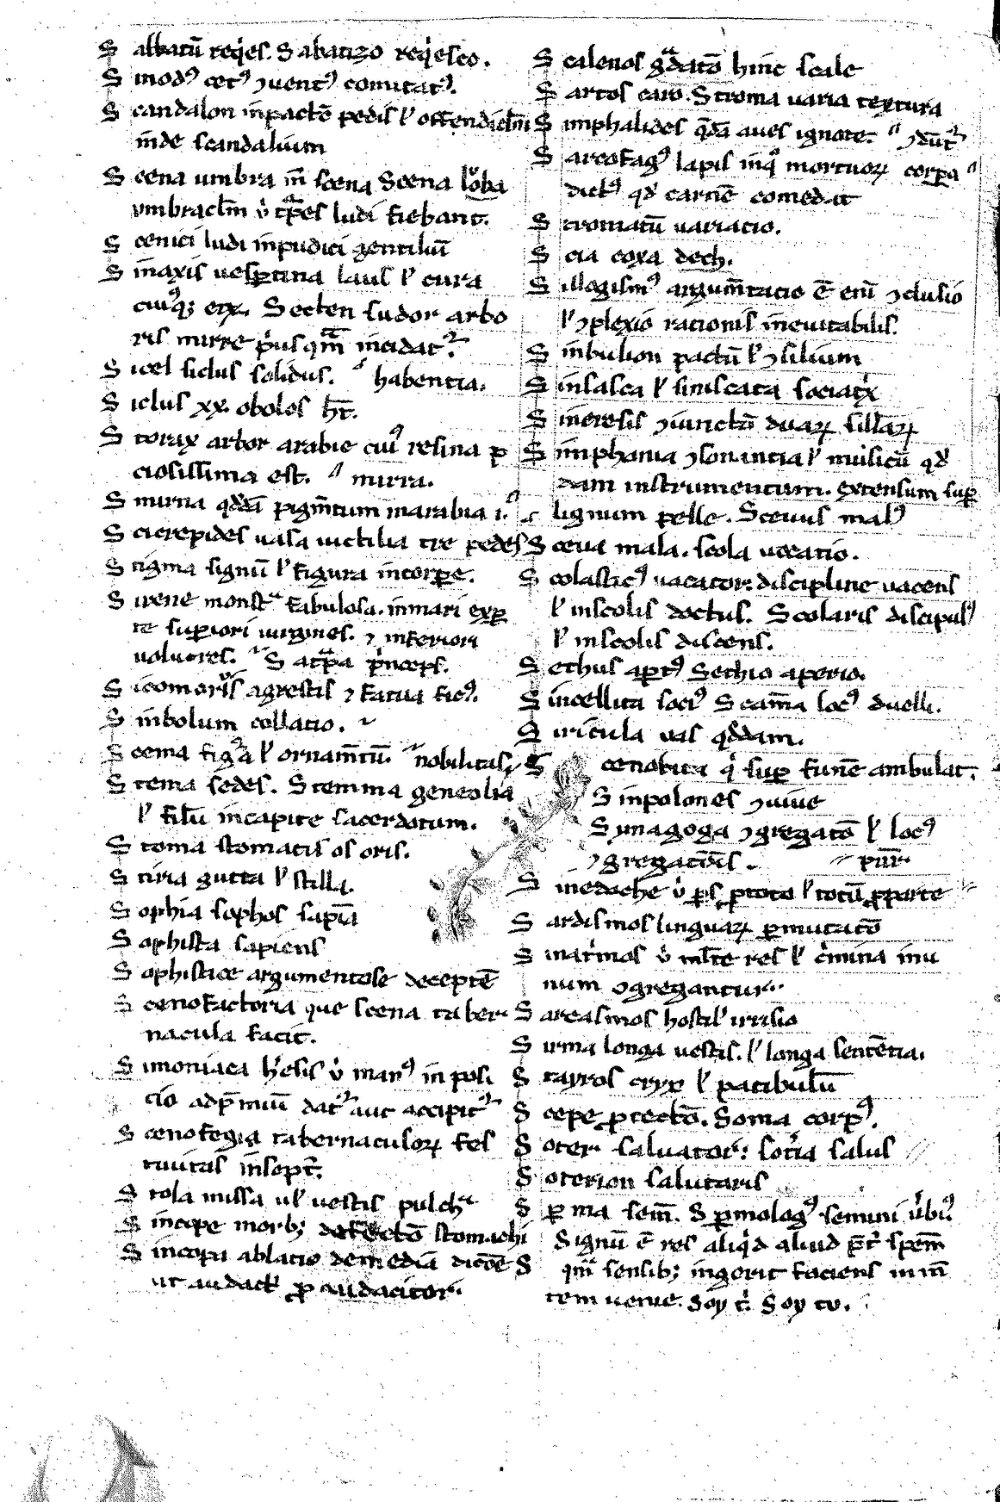 Sabbatū reqͥes. Sabatizo reqͥesco.
Sinodꝰ cetꝰ ꝯuentꝰ comitatꝰ.
Scandalon inpactō pedis lͥ offendiclm̄
inde scandalium
Scena umbra in̄ scena Scena
umbraclm̄ ludi fiebant.
Scenici ludi inpudici gentiliū
Sinaxis uesꝑtina laus lͥ cura
Secten sudor arbo
ris mirre incidatᷣ.
Sicel siclus solidus. habentia.
Siclus xx. obolos ht̄.
Storax arbor arabie cuiꝰ resina p̄
ciosissima est. mirra.
Smirna qͥddā pigm̄tum inarabia .i.
Scicrepides uasa uictilia tre pedes
Stigma signū lͥ figura incorꝑe.
Sirene monstͣ fabulosa. inmari exꝑ
te suꝑiori uirgines. ⁊ inferiori
uolucres. Satͣpa pͥnceps.
Sicomorꝰ agrestis ⁊ fatua ficꝰ.
Sinbolum collatio.
Scema figͣa lͥ ornam̄tū. nobilitas
Stema sedes. Stemma geneolia
lͥ filū incapite sacerdotum.
Stoma stomatis os oris.
Stiria gutta lͥ stilla.
Sophia sophos sapiā
Sophista sapiens
Sophistice argumentose deceptē
Scenofactoria que scena taber
nacula facit.
Simoniaca hͥesis manꝰ in posi
cio adp̄miū datᷣ aut accipitᷣ
Scenofegia tabernaculoꝝ fes
tiuitas insept̄.
Stola missa ul̄ uestis pulchͣ
Sincope morbꝫ defectō stomachi
Sincopa ablatio demediā dictōe
ut audact̄ ꝓ audaciter.
Scalenos gͣdatō hinc scale
Sartos caro. Stroma uaria textura
Simphalides qͥdā aues ignote. ꝯdūtᷣ
Sarcofagꝰ lapis inqͦ mortuoꝝ corꝑa
dictꝰ qd̄ carnē comedit
Stromatū uariatio.
Scia coxa dech.
Sillogismꝰ argum̄tatio ē enī ꝯclusio
lͥ ꝯplexio rationis ineuitabilis.
Sinbulion pactū lͥ ꝯsilium
Sinsasca lͥ siniscata sociatͥx
Sineresis ꝯiunctō duaꝝ sillaꝝ
Simphania ꝯsonantia lͥ musicū qd̄
dam instrumentum. extensum suꝑ
lignum pelle. Sceuus malꝰ
Sceua mala. scola uocatio.
Scolasticꝰ uacator. discipline uacens
lͥ inscolis doctus. Scolaris discipulꝰ
lͥ inscolis discens.
Sethus aꝑtꝰ Sethio aperio.
Sincellita sociꝰ Scam̄a locꝰ duelli.
Siricula uas qͦddam.
Scenobita qͥ suꝑ funē ambulat.
Sinpolones ꝯuiue
Synagoga ꝯgregatō lͥ locꝰ
ꝯgregatiōis.
Sinedoche ps̄ ꝓtoto lͥ totū ꝓparte
Sardismos linguaꝝ ꝑmutatō
Sinatͥmos ml̄te res lͥ cͥmina inu
num ꝯgregantur.
Sarcasmos hostilͥ irrisio
Sirma longa uestis. lͥ longa sentētia.
Stayros cryx lͥ patibulū
Scepe ꝓtectō. Soma corpꝰ.
Soter saluator: sotͥia salus
Soterion salutaris
Sꝑma sem̄. Sꝑmologꝰ semini uͥbiꝰ
Signū ē res aliqͥd aliud pt̄ spem̄
qm̄ sensibꝫ ingerit faciens inm̄
tem uenie. Soy tͥ. Soy tu.